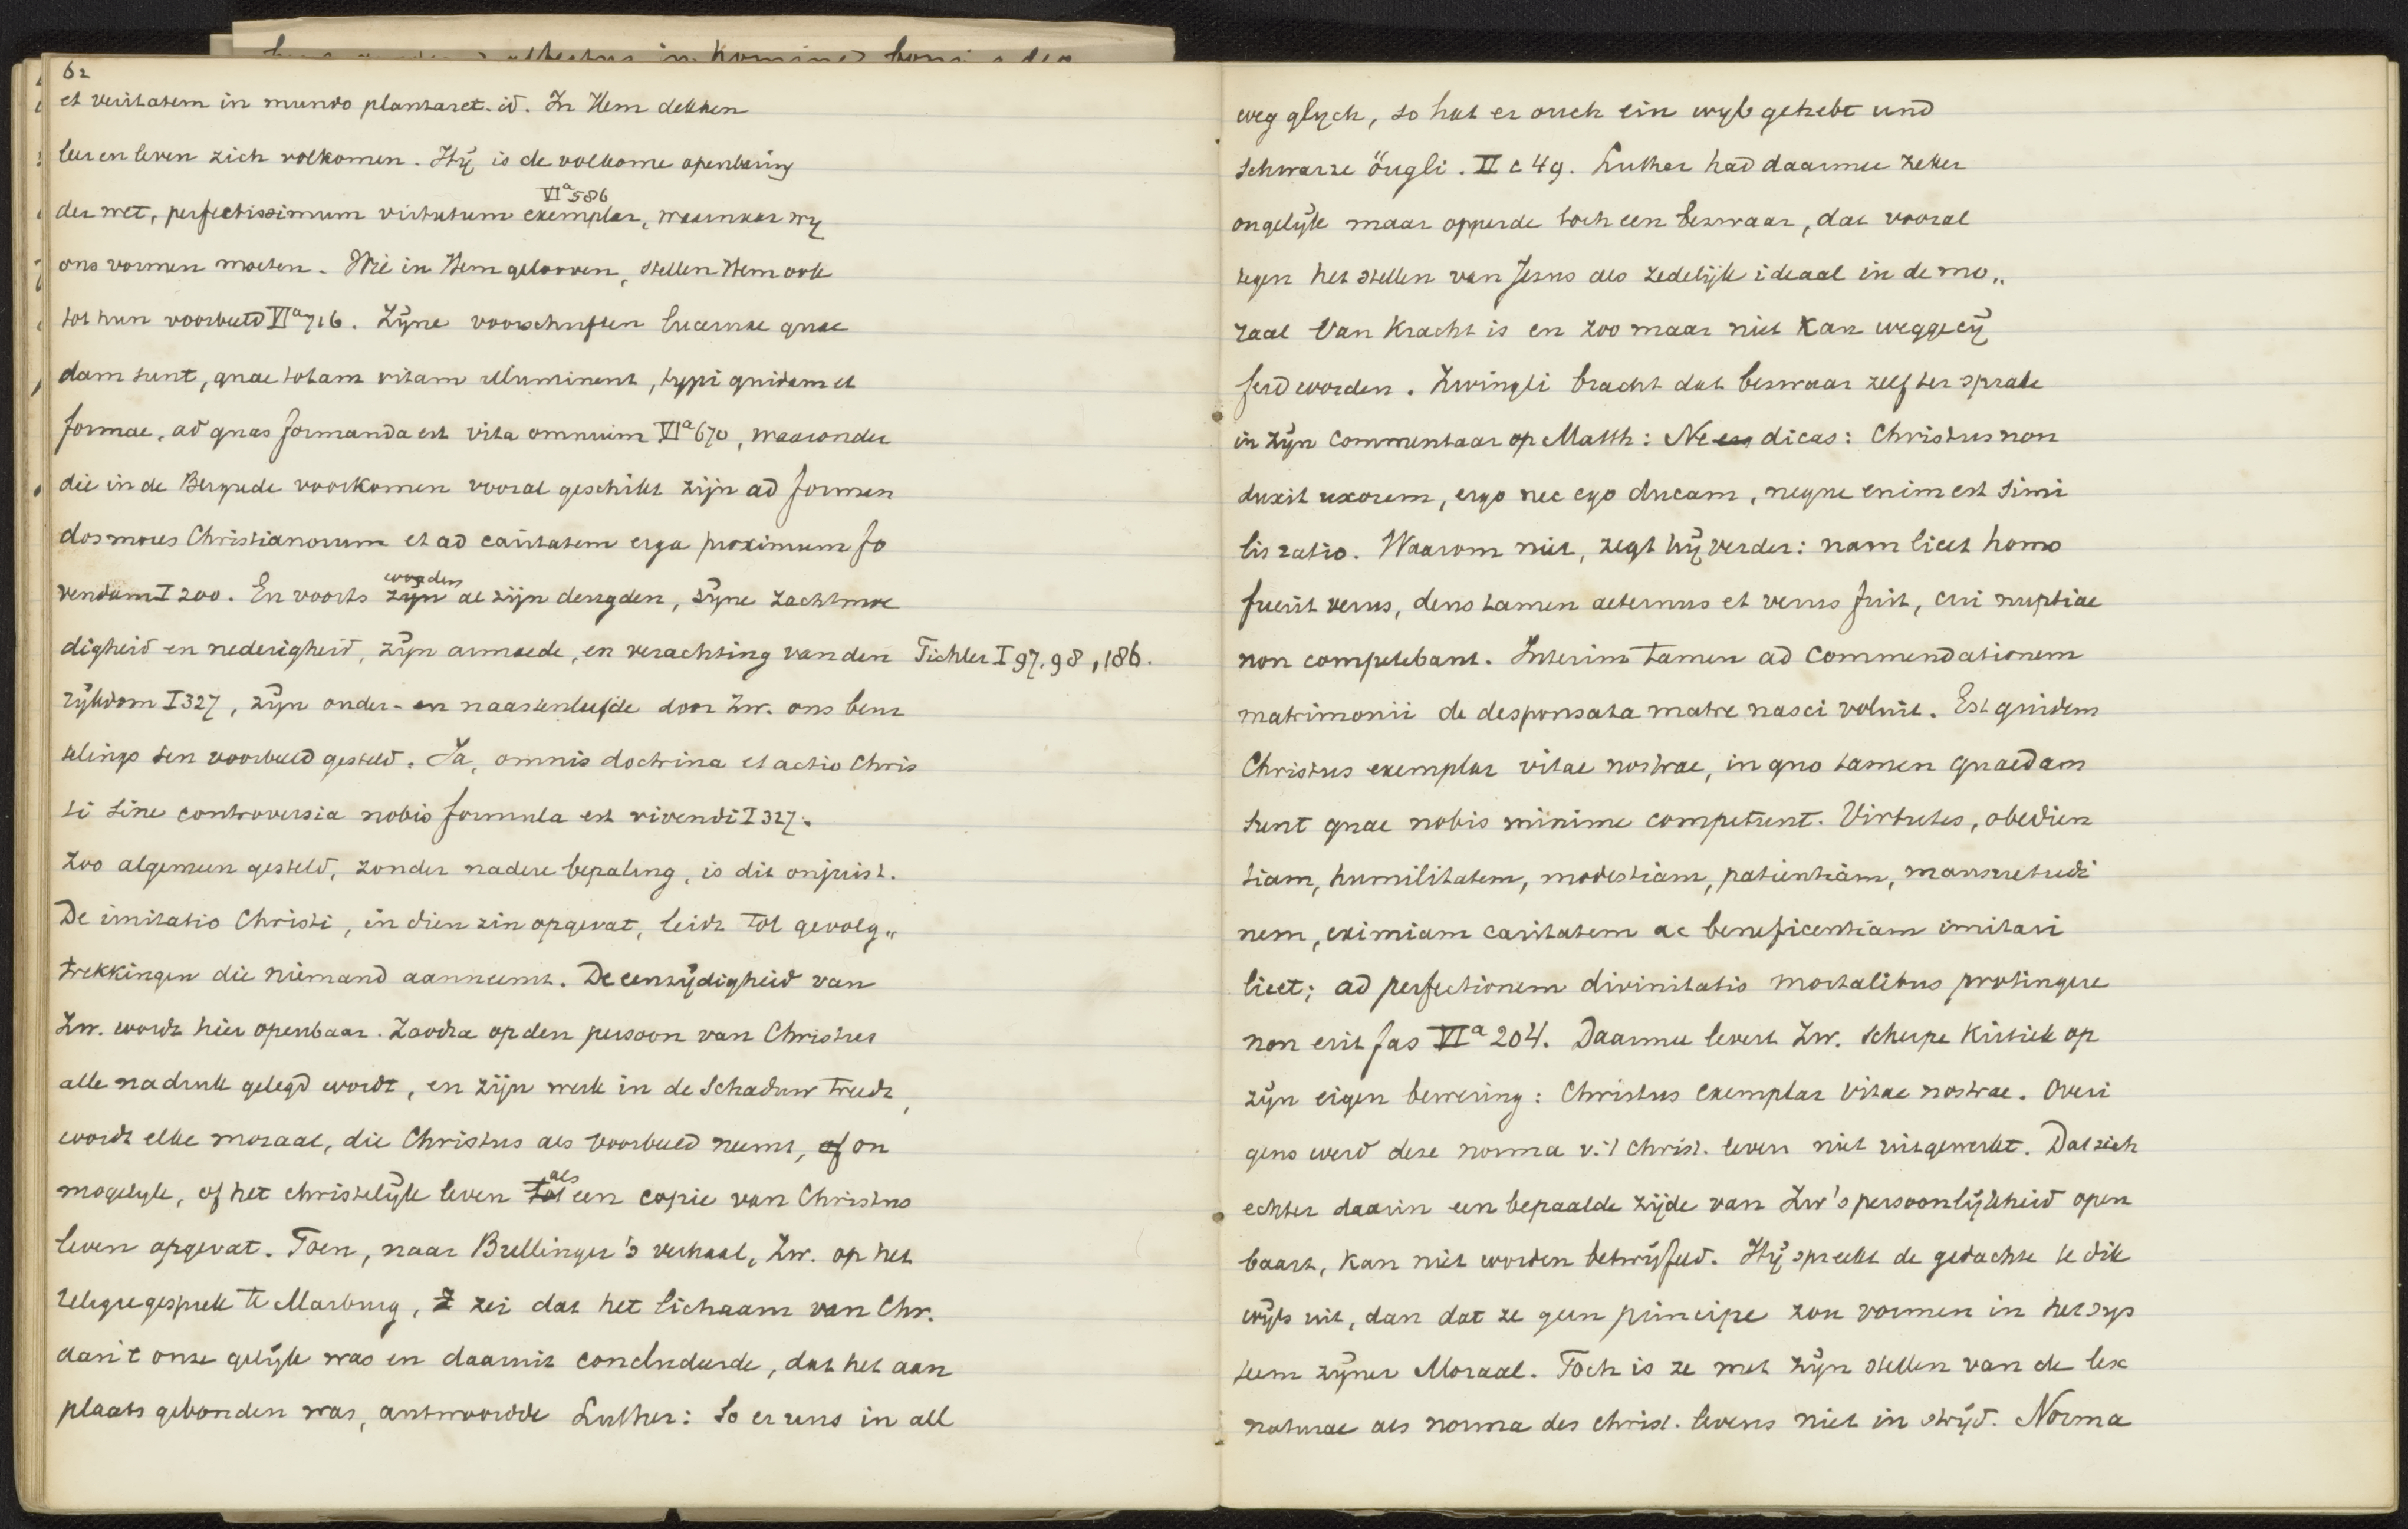 62
et veritatem in mundo plantaret. id. In Hem dekken
leer en leven zich volkomen. Hij is de volkome openbaring
der wet, perfectissimum virtutum exemplar, VIa 586 waarnaar wij
ons vormen moeten. Wie in Hem gelooven, stellen Hem ook
tot hun voorbeeld VIa 716. Zijne voorschriften lucernae quae
dam sunt, quae totam vitam illuminent, typi quidem et
formae, ad quas formanda est vita omnium VIa 670, waaronder
die in de Bergrede voorkomen vooral geschikt zijn ad forman
dos mores Christianorum et ad caritatem erga proximum fo
vendam I 200. En voorts zijn worden al zijn deugden, zijne zachtmoe
digheid en nederigheid, zijn armoede, en verachting van den Tichler I 97, 98, 186.
rijkdom I 327, zijn ouder- en naastenliefde door Zw. ons beur
telings ten voorbeeld gesteld. Ja, omnis doctrina et actio Chris
ti sine controversia nobis formula est vivendi I 327.
Zoo algemeen gesteld, zonder nadere bepaling, is dit onjuist.
De imitatio Christi, in dien zin opgevat, leidt tot gevolg„
trekkingen die niemand aanneemt. De eenzijdigheid van
Zw. wordt hier openbaar. Zoodra op den persoon van Christus
alle nadruk gelegd wordt, en zijn werk in de schaduw treedt,
wordt elke moraal, die Christus als voorbeeld neemt, of on
mogelijk, of het christelijk leven tot als een copie van Christus
leven opgevat. Toen, naar Bullinger's verhaal, Zw. op het
religiegesprek te Marburg, Z zei dat het lichaam van Chr.
aan 't onze gelijk was en daaruit concludeerde, dat het aan
plaats gebonden was, antwoordde Luther: So er uns in all
weg glych, so hat er ouch ein wyb gehebt und
schwarze öugli. II c 49. Luther had daarmee zeker
ongelijk maar opperde toch een bezwaar, dat vooral
tegen het stellen van Jesus als zedelijk ideaal in de mo„
raal van kracht is en zoo maar niet kan weggecij
ferd worden. Zwingli bracht dat bezwaar zelf ter sprake
in zijn commentaar op Matth: Ne dicas: Christus non
duxit uxorem, ergo nec ego ducam, neque enim est simi
lis ratio. Waarom niet, zegt hij verder: nam licet homo
fuerit verus, deus tamen aeternus et verus fuit, cui nuptiae
non competebant. Interim tamen ad commendationem
matrimonii de desponsata matre nasci voluit. Est quidem
Christus exemplar vitae nostrae, in quo tamen quaedam
sunt quae nobis minime competunt. Virtutes, obedien
tiam, humilitatem, modestiam, patientiam, mansuetudi
nem, eximiam caritatem ac beneficentiam imitari
licet; ad perfectionem divinitatis mortalibus protingere
non erit fas VIa 204. Daarmee levert Zw. scherpe kritiek op
zijn eigen bewering: Christus exemplar vitae nostrae. Overi
gens werd deze norma v. 't christ. leven niet uitgewerkt. Dat zich
echter daarin een bepaalde zijde van Zw's persoonlijkheid open
baart, kan niet worden betwijfeld. Hij spreekt de gedachte te dik
wijls uit, dan dat ze geen principe zou vormen in het sys
teem zijner Moraal. Toch is ze met zijn stellen van de lex
naturae als norma des christ. levens niet in strijd. Norma